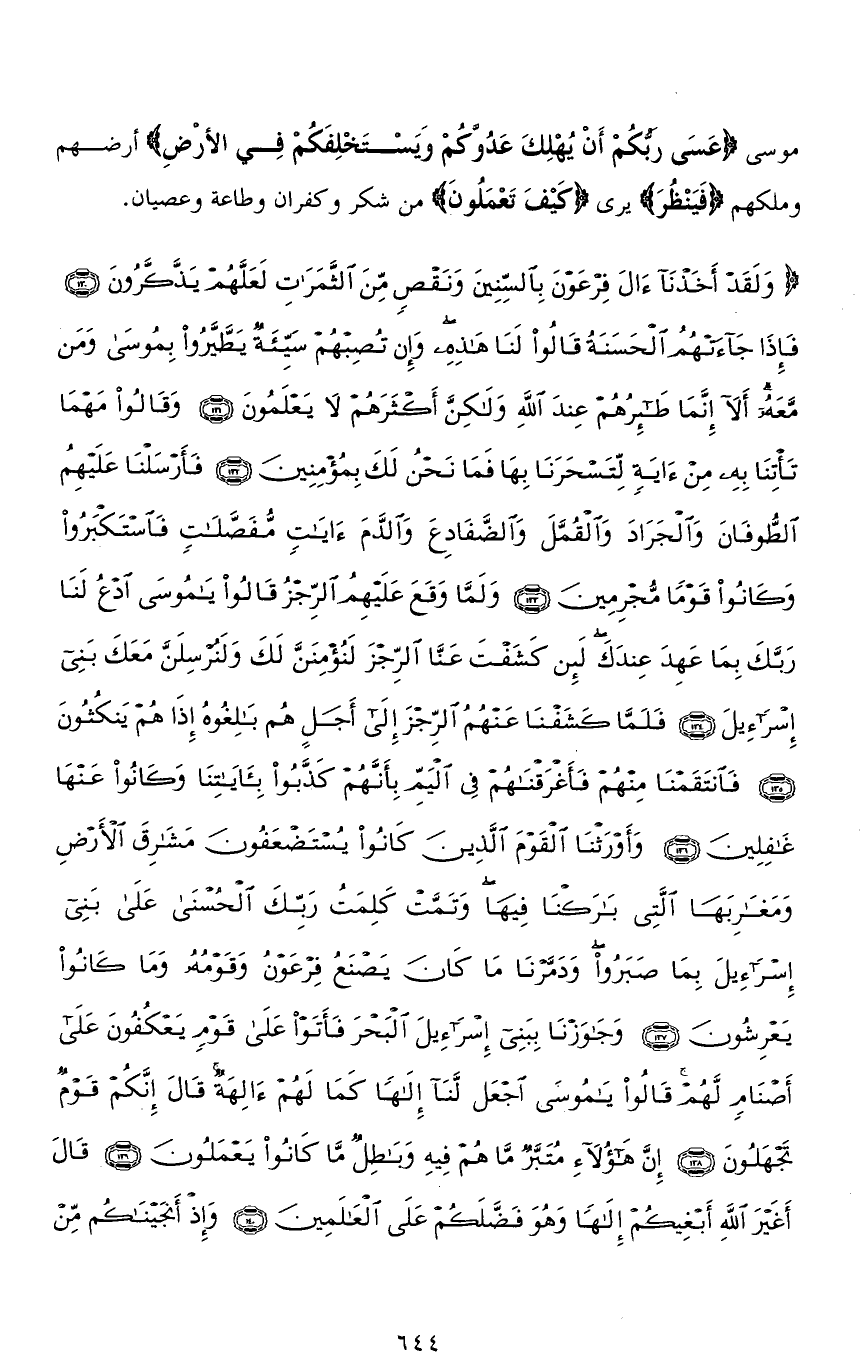 موسى ﴿عَسَى رَبُّكُمْ أَنْ يُهْلِكَ عَدُوَّكُمْ وَيَسْتَخْلِفَكُمْ فِي الأرْضِ﴾ أرضهم
وملكهم ﴿فَيَنْظُرَ﴾ يرى ﴿كَيْفَ تَعْمَلُونَ﴾ من شكر وكفران وطاعة وعصيان.
﴿ وَلَقَدْ أَخَذْنَآ ءَالَ فِرْعَوْنَ بِٱلسِّنِينَ وَنَقْصٍ مِّنَ ٱلثَّمَرَٰتِ لَعَلَّهُمْ يَذَّكَّرُونَ ١٣٠
فَإِذَا جَآءَتْهُمُ ٱلْحَسَنَةُ قَالُوا۟ لَنَا هَـٰذِهِۦ ۖ وَإِن تُصِبْهُمْ سَيِّئَةٌ يَطَّيَّرُوا۟ بِمُوسَىٰ وَمَن
مَّعَهُۥٓ ۗ أَلَآ إِنَّمَا طَـٰٓئِرُهُمْ عِندَ ٱللَّهِ وَلَـٰكِنَّ أَكْثَرَهُمْ لَا يَعْلَمُونَ ١٣١ وَقَالُوا۟ مَهْمَا
تَأْتِنَا بِهِۦ مِنْ ءَايَةٍ لِّتَسْحَرَنَا بِهَا فَمَا نَحْنُ لَكَ بِمُؤْمِنِينَ ١٣٢ فَأَرْسَلْنَا عَلَيْهِمُ
ٱلطُّوفَانَ وَٱلْجَرَادَ وَٱلْقُمَّلَ وَٱلضَّفَادِعَ وَٱلدَّمَ ءَايَـٰتٍ مُّفَصَّلَـٰتٍ فَٱسْتَكْبَرُوا۟
وَكَانُوا۟ قَوْمًا مُّجْرِمِينَ ١٣٣ وَلَمَّا وَقَعَ عَلَيْهِمُ ٱلرِّجْزُ قَالُوا۟ يَـٰمُوسَى ٱدْعُ لَنَا
رَبَّكَ بِمَا عَهِدَ عِندَكَ ۖ لَئِن كَشَفْتَ عَنَّا ٱلرِّجْزَ لَنُؤْمِنَنَّ لَكَ وَلَنُرْسِلَنَّ مَعَكَ بَنِىٓ
إِسْرَٰٓءِيلَ ١٣٤ فَلَمَّا كَشَفْنَا عَنْهُمُ ٱلرِّجْزَ إِلَىٰٓ أَجَلٍ هُم بَـٰلِغُوهُ إِذَا هُمْ يَنكُثُونَ
١٣٥ فَٱنتَقَمْنَا مِنْهُمْ فَأَغْرَقْنَـٰهُمْ فِى ٱلْيَمِّ بِأَنَّهُمْ كَذَّبُوا۟ بِـَٔايَـٰتِنَا وَكَانُوا۟ عَنْهَا
غَـٰفِلِينَ ١٣٦ وَأَوْرَثْنَا ٱلْقَوْمَ ٱلَّذِينَ كَانُوا۟ يُسْتَضْعَفُونَ مَشَـٰرِقَ ٱلْأَرْضِ
وَمَغَـٰرِبَهَا ٱلَّتِى بَـٰرَكْنَا فِيهَا ۖ وَتَمَّتْ كَلِمَتُ رَبِّكَ ٱلْحُسْنَىٰ عَلَىٰ بَنِىٓ
إِسْرَٰٓءِيلَ بِمَا صَبَرُوا۟ ۖ وَدَمَّرْنَا مَا كَانَ يَصْنَعُ فِرْعَوْنُ وَقَوْمُهُۥ وَمَا كَانُوا۟
يَعْرِشُونَ ١٣٧ وَجَـٰوَزْنَا بِبَنِىٓ إِسْرَٰٓءِيلَ ٱلْبَحْرَ فَأَتَوْا۟ عَلَىٰ قَوْمٍ يَعْكُفُونَ عَلَىٰٓ
أَصْنَامٍ لَّهُمْ ۚ قَالُوا۟ يَـٰمُوسَى ٱجْعَل لَّنَآ إِلَـٰهًا كَمَا لَهُمْ ءَالِهَةٌ ۚ قَالَ إِنَّكُمْ قَوْمٌ
تَجْهَلُونَ ١٣٨ إِنَّ هَـٰٓؤُلَآءِ مُتَبَّرٌ مَّا هُمْ فِيهِ وَبَـٰطِلٌ مَّا كَانُوا۟ يَعْمَلُونَ ١٣٩ قَالَ
أَغَيْرَ ٱللَّهِ أَبْغِيكُمْ إِلَـٰهًا وَهُوَ فَضَّلَكُمْ عَلَى ٱلْعَـٰلَمِينَ ١٤٠ وَإِذْ أَنجَيْنَـٰكُم مِّنْ
٦٤٤